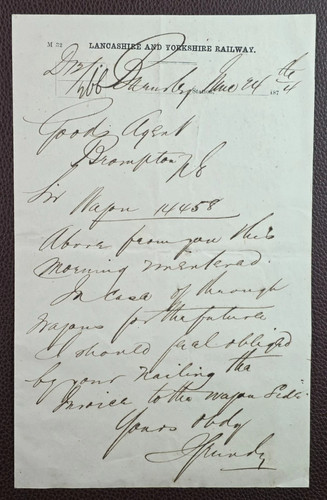 M 22
LANCASHIRE AND YORKSHIRE RAILWAY.
Barnsley June 24th 1874
Goods Agent
Brompton
Sir Wagon 14458
Above from you this
morning
In case of through
wagons for the future
I should feel obliged
by your nailing the
Invoice to the wagon side.
Yours obdy